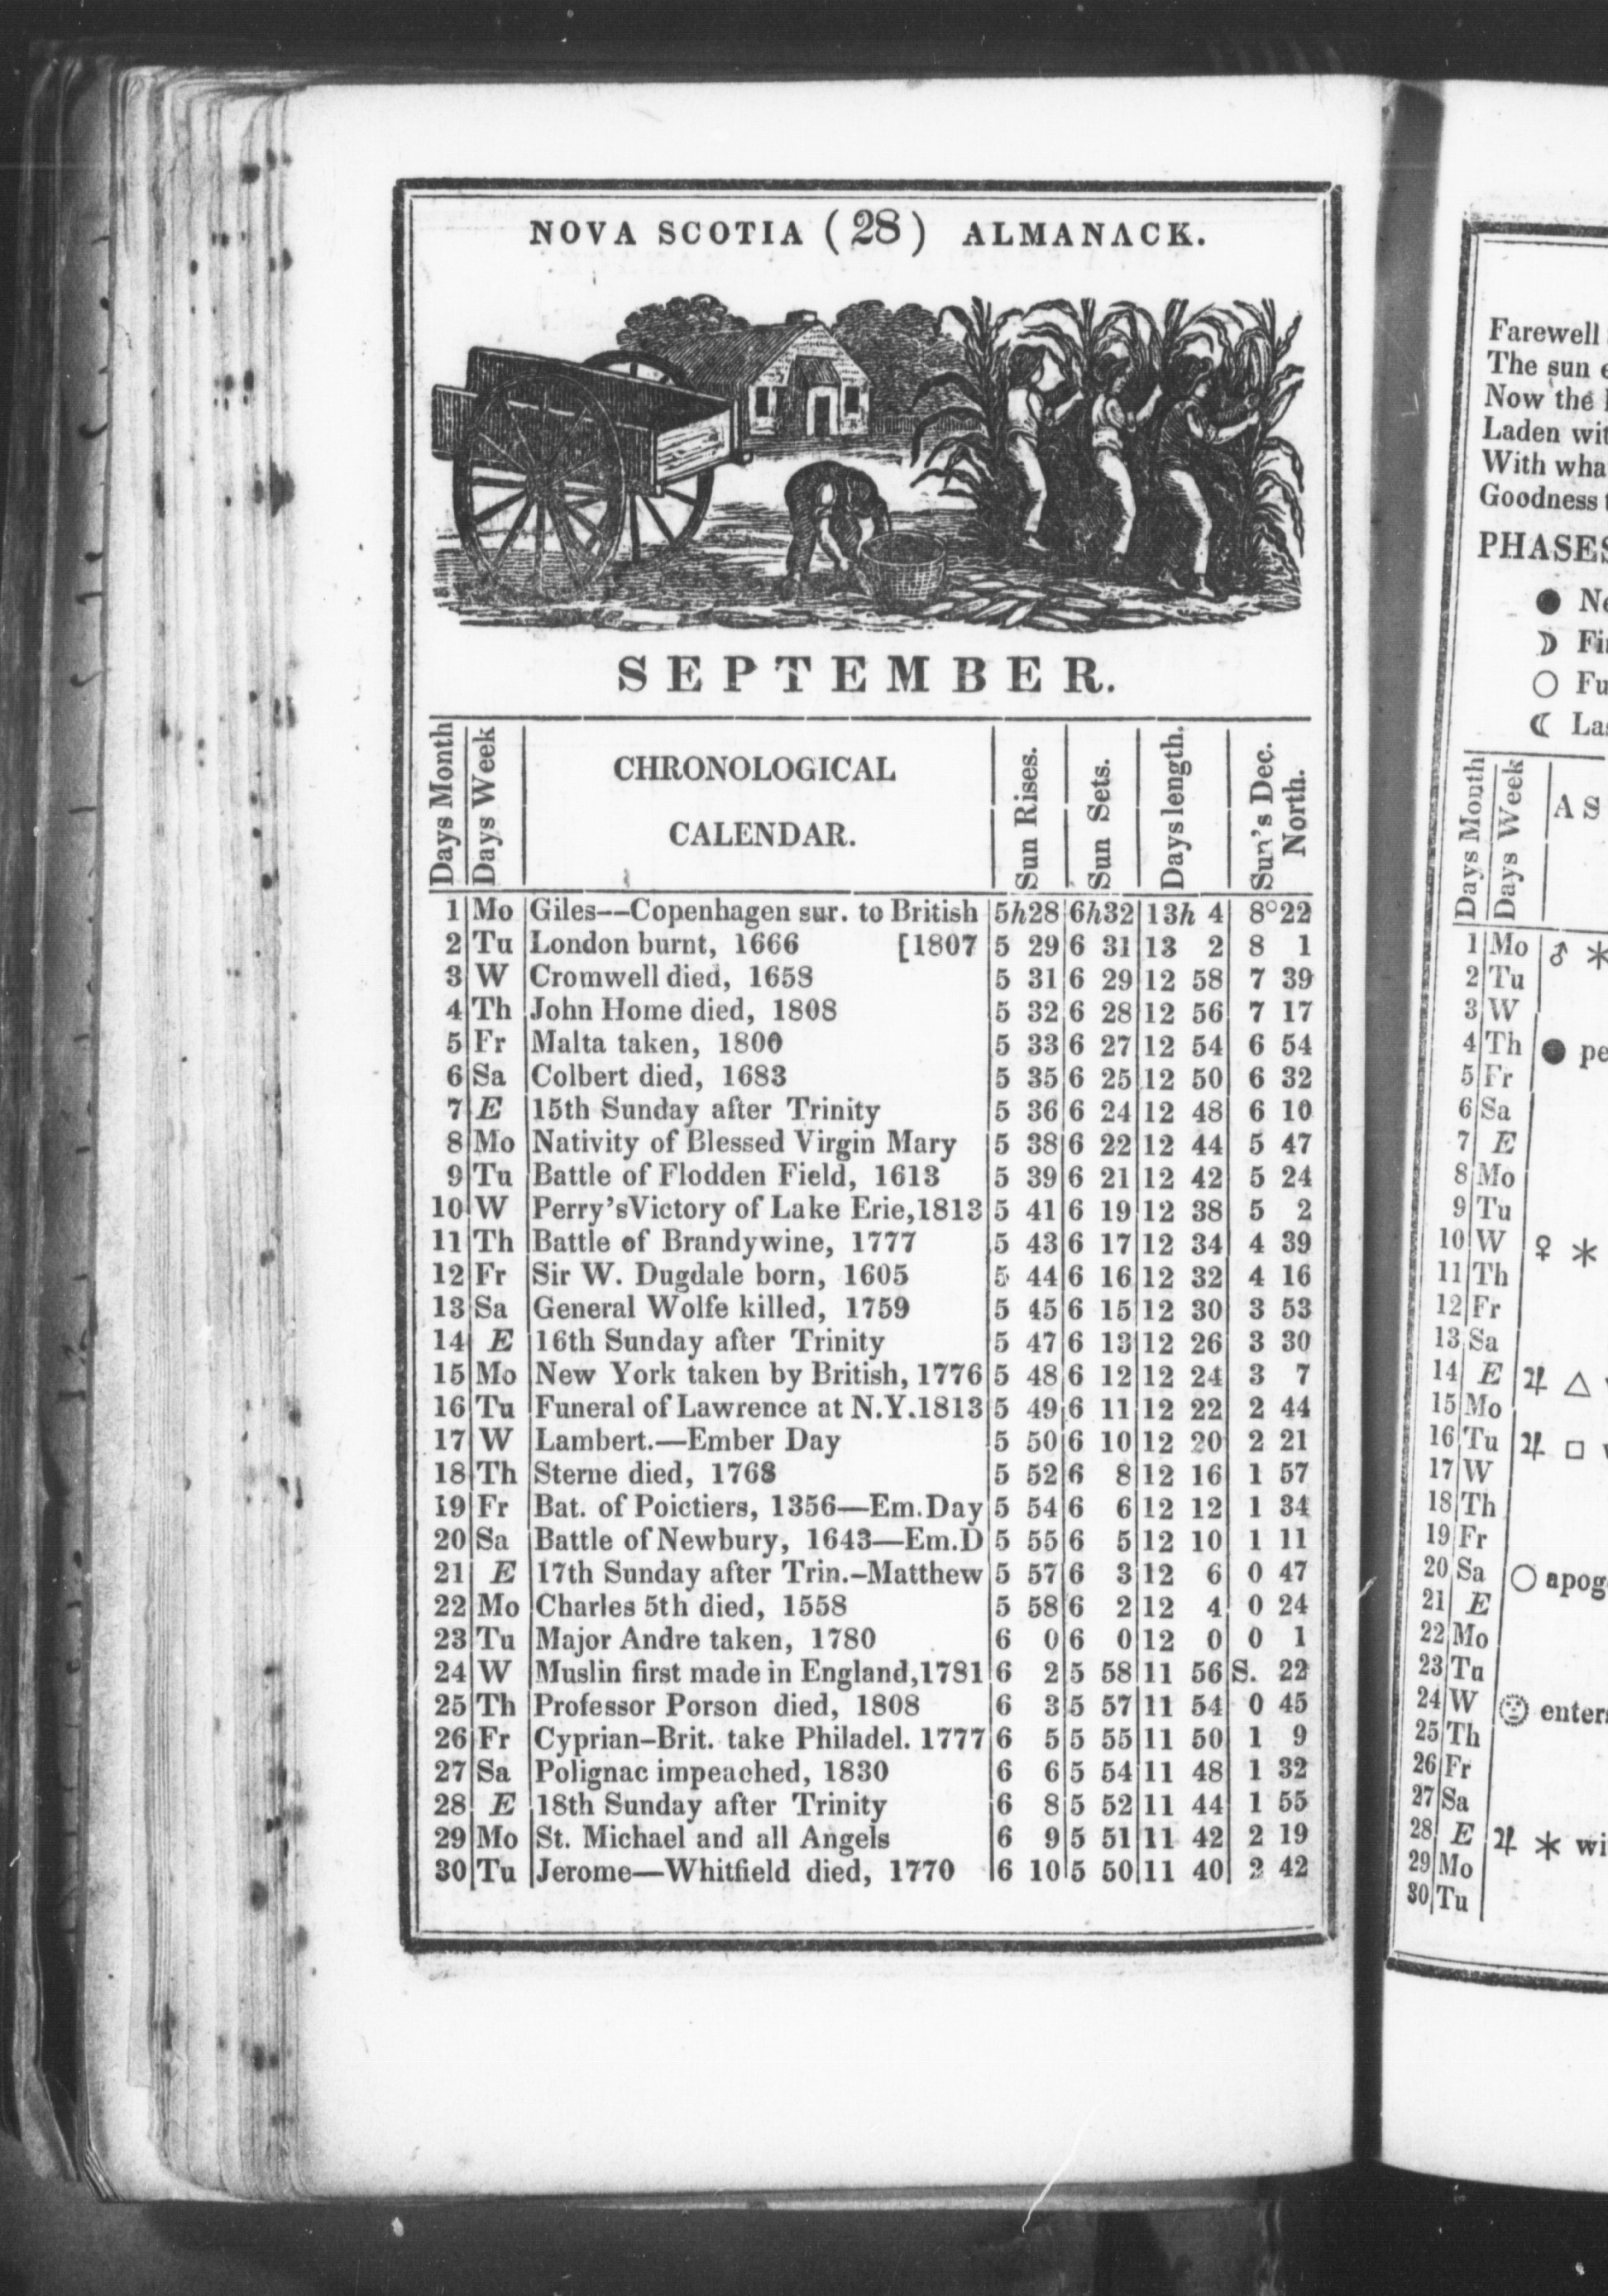 NOVA SCOTIA (28) ALMANACK.
SEPTEMBER.
Days Month
Days Week
CHRONOLOGICAL
CALENDAR.
Sun Rises.
Sun Sets.
Days length.
Sun's Dec.
North.
1 Mo Giles—Copenhagen sur. to British 5h28 6h32 13h 4 8°22
2 Tu London burnt, 1666 [1807 5 29 6 31 13 2 8 1
3 W Cromwell died, 1658 5 31 6 29 12 58 7 39
4 Th John Home died, 1808 5 32 6 28 12 56 7 17
5 Fr Malta taken, 1800 5 33 6 27 12 54 6 54
6 Sa Colbert died, 1683 5 35 6 25 12 50 6 32
7 E 15th Sunday after Trinity 5 36 6 24 12 48 6 10
8 Mo Nativity of Blessed Virgin Mary 5 38 6 22 12 44 5 47
9 Tu Battle of Flodden Field, 1613 5 39 6 21 12 42 5 24
10 W Perry'sVictory of Lake Erie,1813 5 41 6 19 12 38 5 2
11 Th Battle of Brandywine, 1777 5 43 6 17 12 34 4 39
12 Fr Sir W. Dugdale born, 1605 5 44 6 16 12 32 4 16
13 Sa General Wolfe killed, 1759 5 45 6 15 12 30 3 53
14 E 16th Sunday after Trinity 5 47 6 13 12 26 3 30
15 Mo New York taken by British, 1776 5 48 6 12 12 24 3 7
16 Tu Funeral of Lawrence at N.Y.1813 5 49 6 11 12 22 2 44
17 W Lambert.—Ember Day 5 50 6 10 12 20 2 21
18 Th Sterne died, 1768 5 52 6 8 12 16 1 57
19 Fr Bat. of Poictiers, 1356—Em.Day 5 54 6 6 12 12 1 34
20 Sa Battle of Newbury, 1643—Em.D 5 55 6 5 12 10 1 11
21 E 17th Sunday after Trin.-Matthew 5 57 6 3 12 6 0 47
22 Mo Charles 5th died, 1558 5 58 6 2 12 4 0 24
23 Tu Major Andre taken, 1780 6 0 6 0 12 0 0 1
24 W Muslin first made in England,1781 6 2 5 58 11 56 S. 22
25 Th Professor Porson died, 1808 6 3 5 57 11 54 0 45
26 Fr Cyprian-Brit. take Philadel. 1777 6 5 5 55 11 50 1 9
27 Sa Polignac impeached, 1830 6 6 5 54 11 48 1 32
28 E 18th Sunday after Trinity 6 8 5 52 11 44 1 55
29 Mo St. Michael and all Angels 6 9 5 51 11 42 2 19
30 Tu Jerome—Whitfield died, 1770 6 10 5 50 11 40 2 42
Farewell
The sun
Now the
Laden
With
Goodness
●
☽
○
☾
Days Month
Days Week
A S
1 Mo ♂ ⚹
2 Tu
3 W
4 Th ●
5 Fr
6 Sa
7 E
8 Mo
9 Tu
10 W ♀ ⚹
11 Th
12 Fr
13 Sa
14 E ♃ △
15 Mo
16 Tu ♃ □
17 W
18 Th
19 Fr
20 Sa ○
21 E
22 Mo
23 Tu
24 W
25 Th
26 Fr
27 Sa
28 E ♃ ⚹
29 Mo
30 Tu